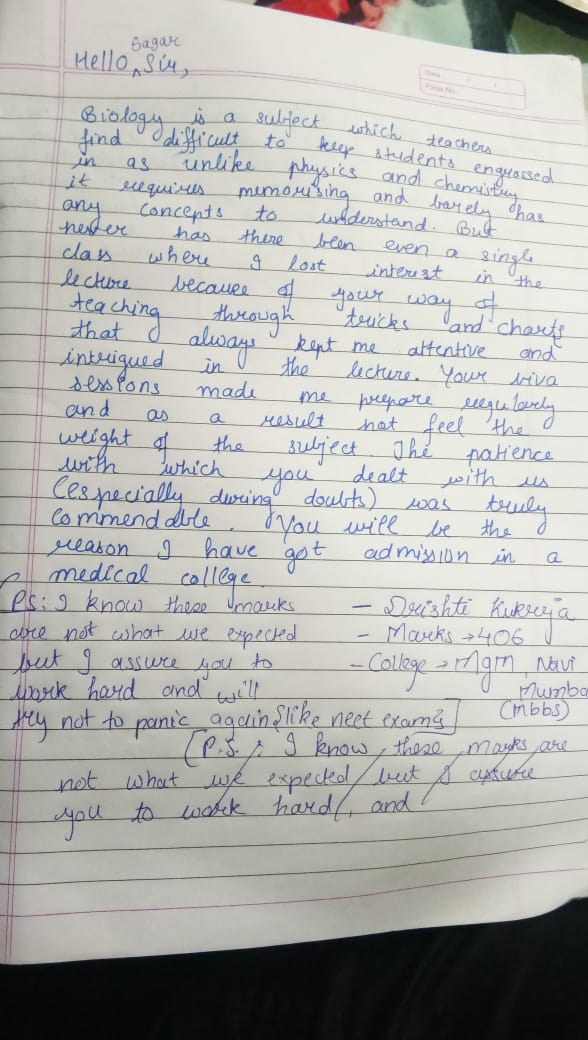 Hello, Sagar Sir,
Date :
Page No. :
Biology is a subject which teachers
find difficult to keep students engrossed
in as unlike physics and chemistry
it requires memorising and barely has
any concepts to understand. But
never has there been even a single
class where I lost interest in the
lecture because of your way of
teaching through tricks and charts
that always kept me attentive and
intrigued in the lecture. Your viva
sessions made me prepare regularly
and as a result not feel the
weight of the subject. The patience
with which you dealt with us
(especially during doubts) was truly
commendable. You will be the
reason I have got admission in a
medical college.
- Drishti Kukreja
- Marks → 406
- College → Mgm, Navi
Mumbai
(mbbs)
[PS: I know these marks
are not what we expected
but I assure you to
work hard and will
try not to panic again {like neet exam}]
[P.S. : I know, these marks are
not what we expected but I assure
you to work hard, and